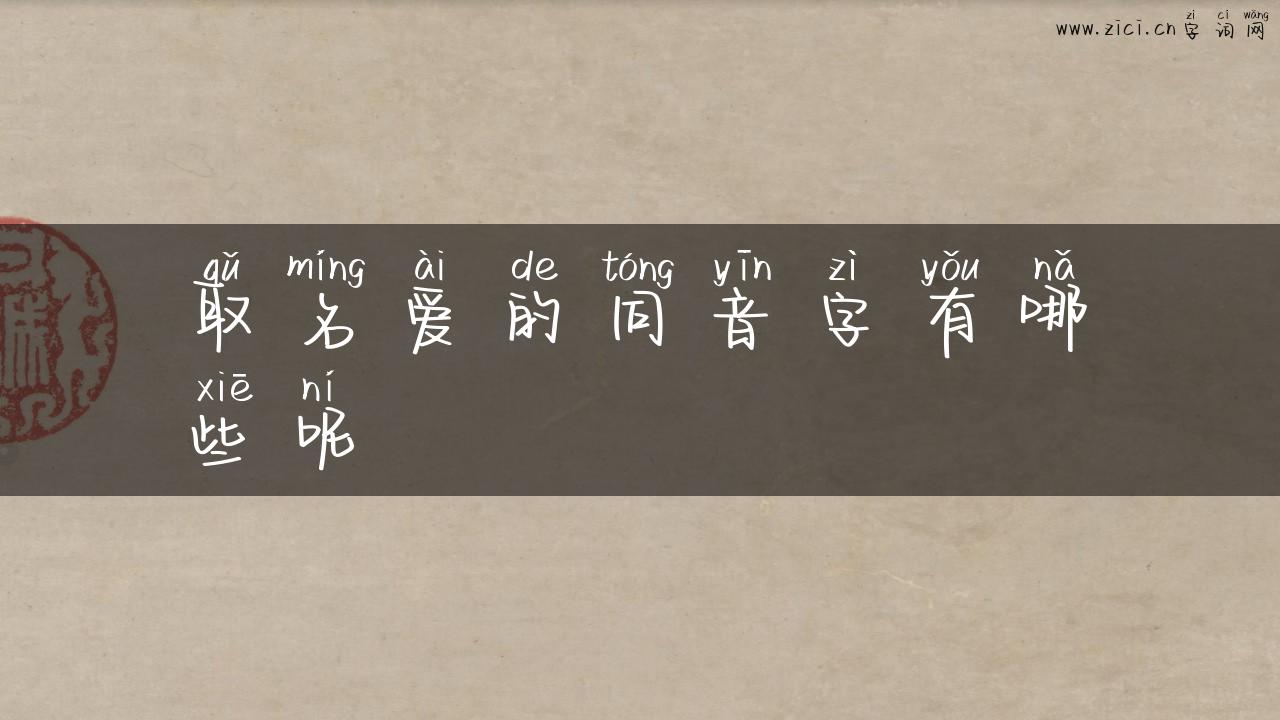 zì cí wǎng
www.zici.cn 字 词 网
qǔ míng ài de tóng yīn zì yǒu nǎ
取 名 爱 的 同 音 字 有 哪
xiē ní
些 呢